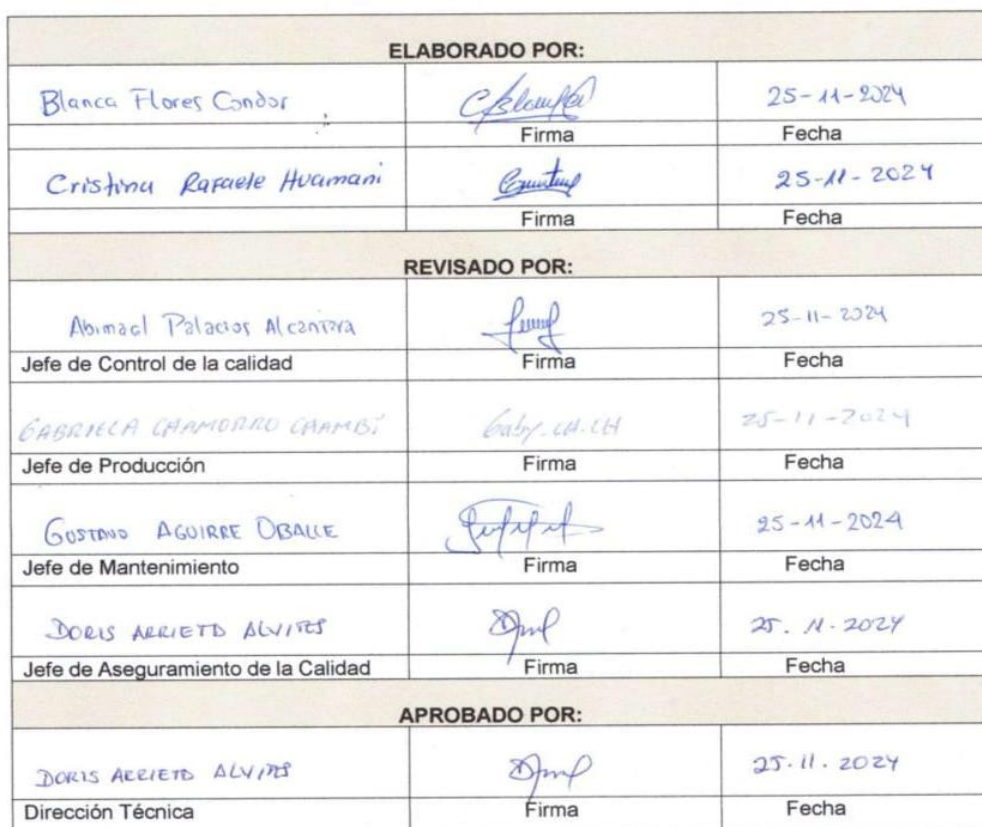 ELABORADO POR:
Blanca Flores Condor 25-11-2024
Firma Fecha
Cristina Rafaele Huamani 25-11-2024
Firma Fecha
REVISADO POR:
Abimael Palacios Alcantara 25-11-2024
Jefe de Control de la calidad Firma Fecha
GABRIELA CHAMORRO CHAMBI Gaby.CH.CH 25-11-2024
Jefe de Producción Firma Fecha
GUSTAVO AGUIRRE OBALLE 25-11-2024
Jefe de Mantenimiento Firma Fecha
DORIS ARRIETA ALVITES 25.11.2024
Jefe de Aseguramiento de la Calidad Firma Fecha
APROBADO POR:
DORIS ARRIETA ALVITES 25.11.2024
Dirección Técnica Firma Fecha